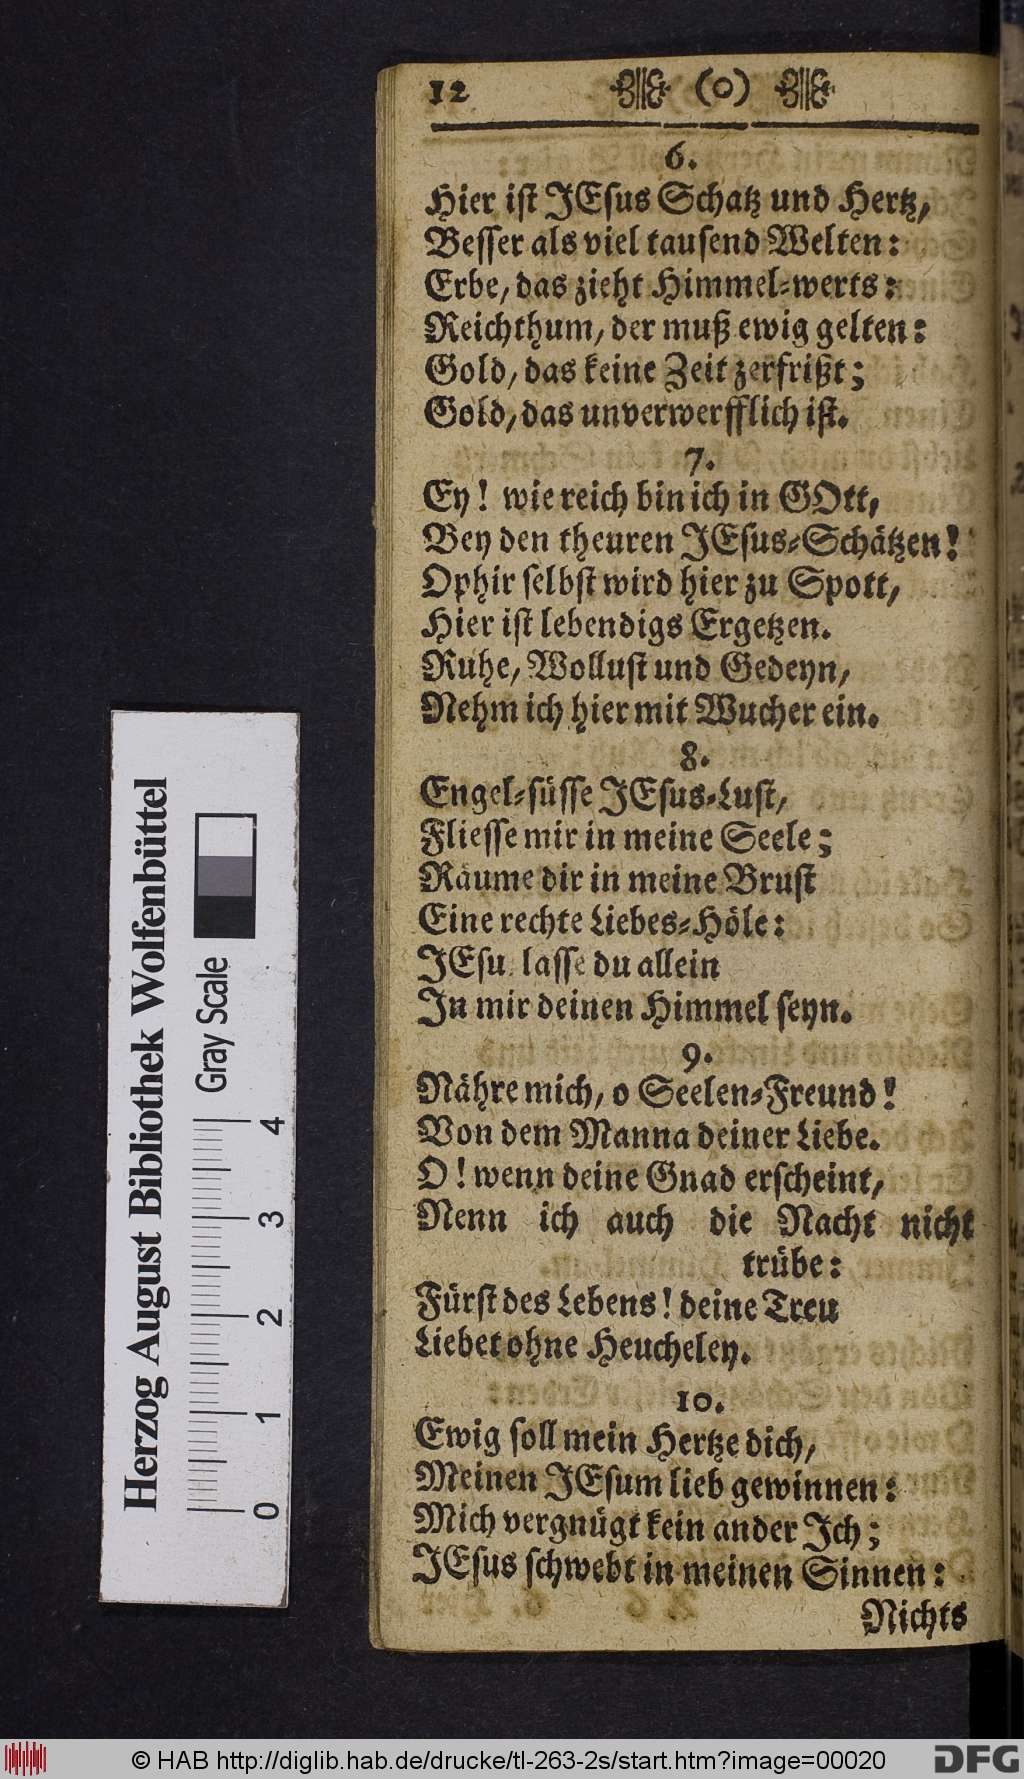 12 (o)
6.
Hier iſt JEſus Schatz und Hertz,
Beſſer als viel tauſend Welten:
Erbe, das zieht Himmel-werts:
Reichthum, der muß ewig gelten:
Gold, das keine Zeit zerfrißt;
Gold, das unverwerfflich iſt.
7.
Ey! wie reich bin ich in GOtt,
Bey den theuren JEſus-Schätzen!
Ophir ſelbſt wird hier zu Spott,
Hier iſt lebendigs Ergetzen.
Ruhe, Wolluſt und Gedeyn,
Nehm ich hier mit Wucher ein.
8.
Engel-ſüſſe JEſus-Luſt,
Flieſſe mir in meine Seele;
Räume dir in meine Bruſt
Eine rechte Liebes-Höle:
JEſu laſſe du allein
In mir deinen Himmel ſeyn.
9.
Nähre mich, o Seelen-Freund!
Von dem Manna deiner Liebe.
O! wenn deine Gnad erſcheint,
Nenn ich auch die Nacht nicht
trübe:
Fürſt des Lebens! deine Treu
Liebet ohne Heucheley.
10.
Ewig ſoll mein Hertze dich,
Meinen JEſum lieb gewinnen:
Mich vergnügt kein ander Ich;
JEſus ſchwebt in meinen Sinnen:
Nichts
Herzog August Bibliothek Wolfenbüttel
Gray Scale
0 1 2 3 4
© HAB http://diglib.hab.de/drucke/tl-263-2s/start.htm?image=00020
DFG